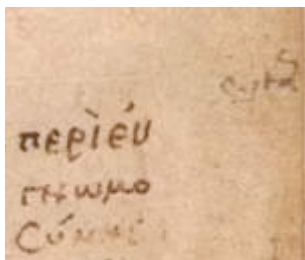 περὶ εὐ
γνωμο
σύνης